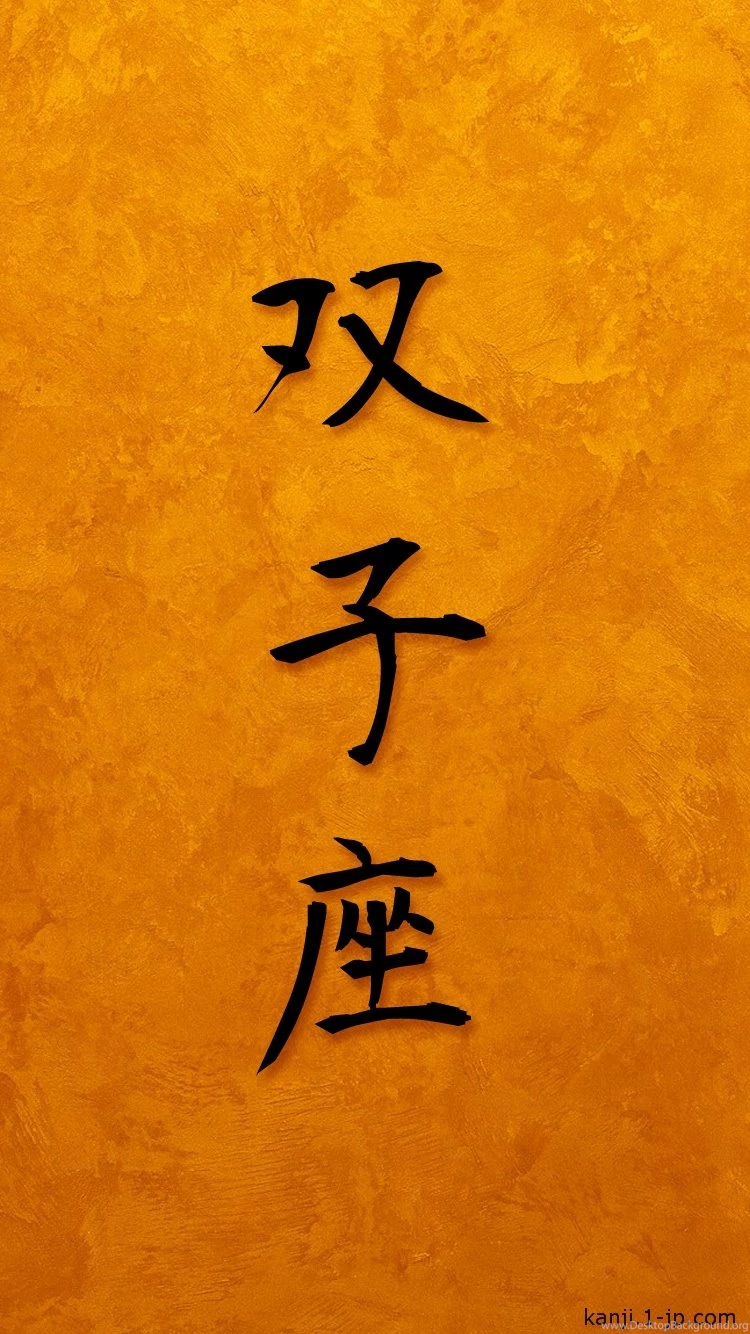 双子座
kanji.1-jp.com
www.DesktopBackground.org